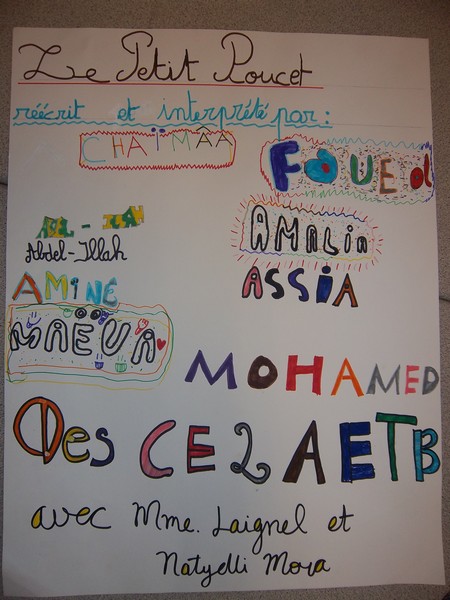 Le Petit Poucet
réécrit et interprété par:
CHAÏMÂA
FOUED
ABEL-ILLAH
Abdel-Illah
AMALIA
AMINE
ASSIA
MAËVA
MOHAMED
Des CE2 A ET B
avec Mme. Laignel et
Natyelli Mora